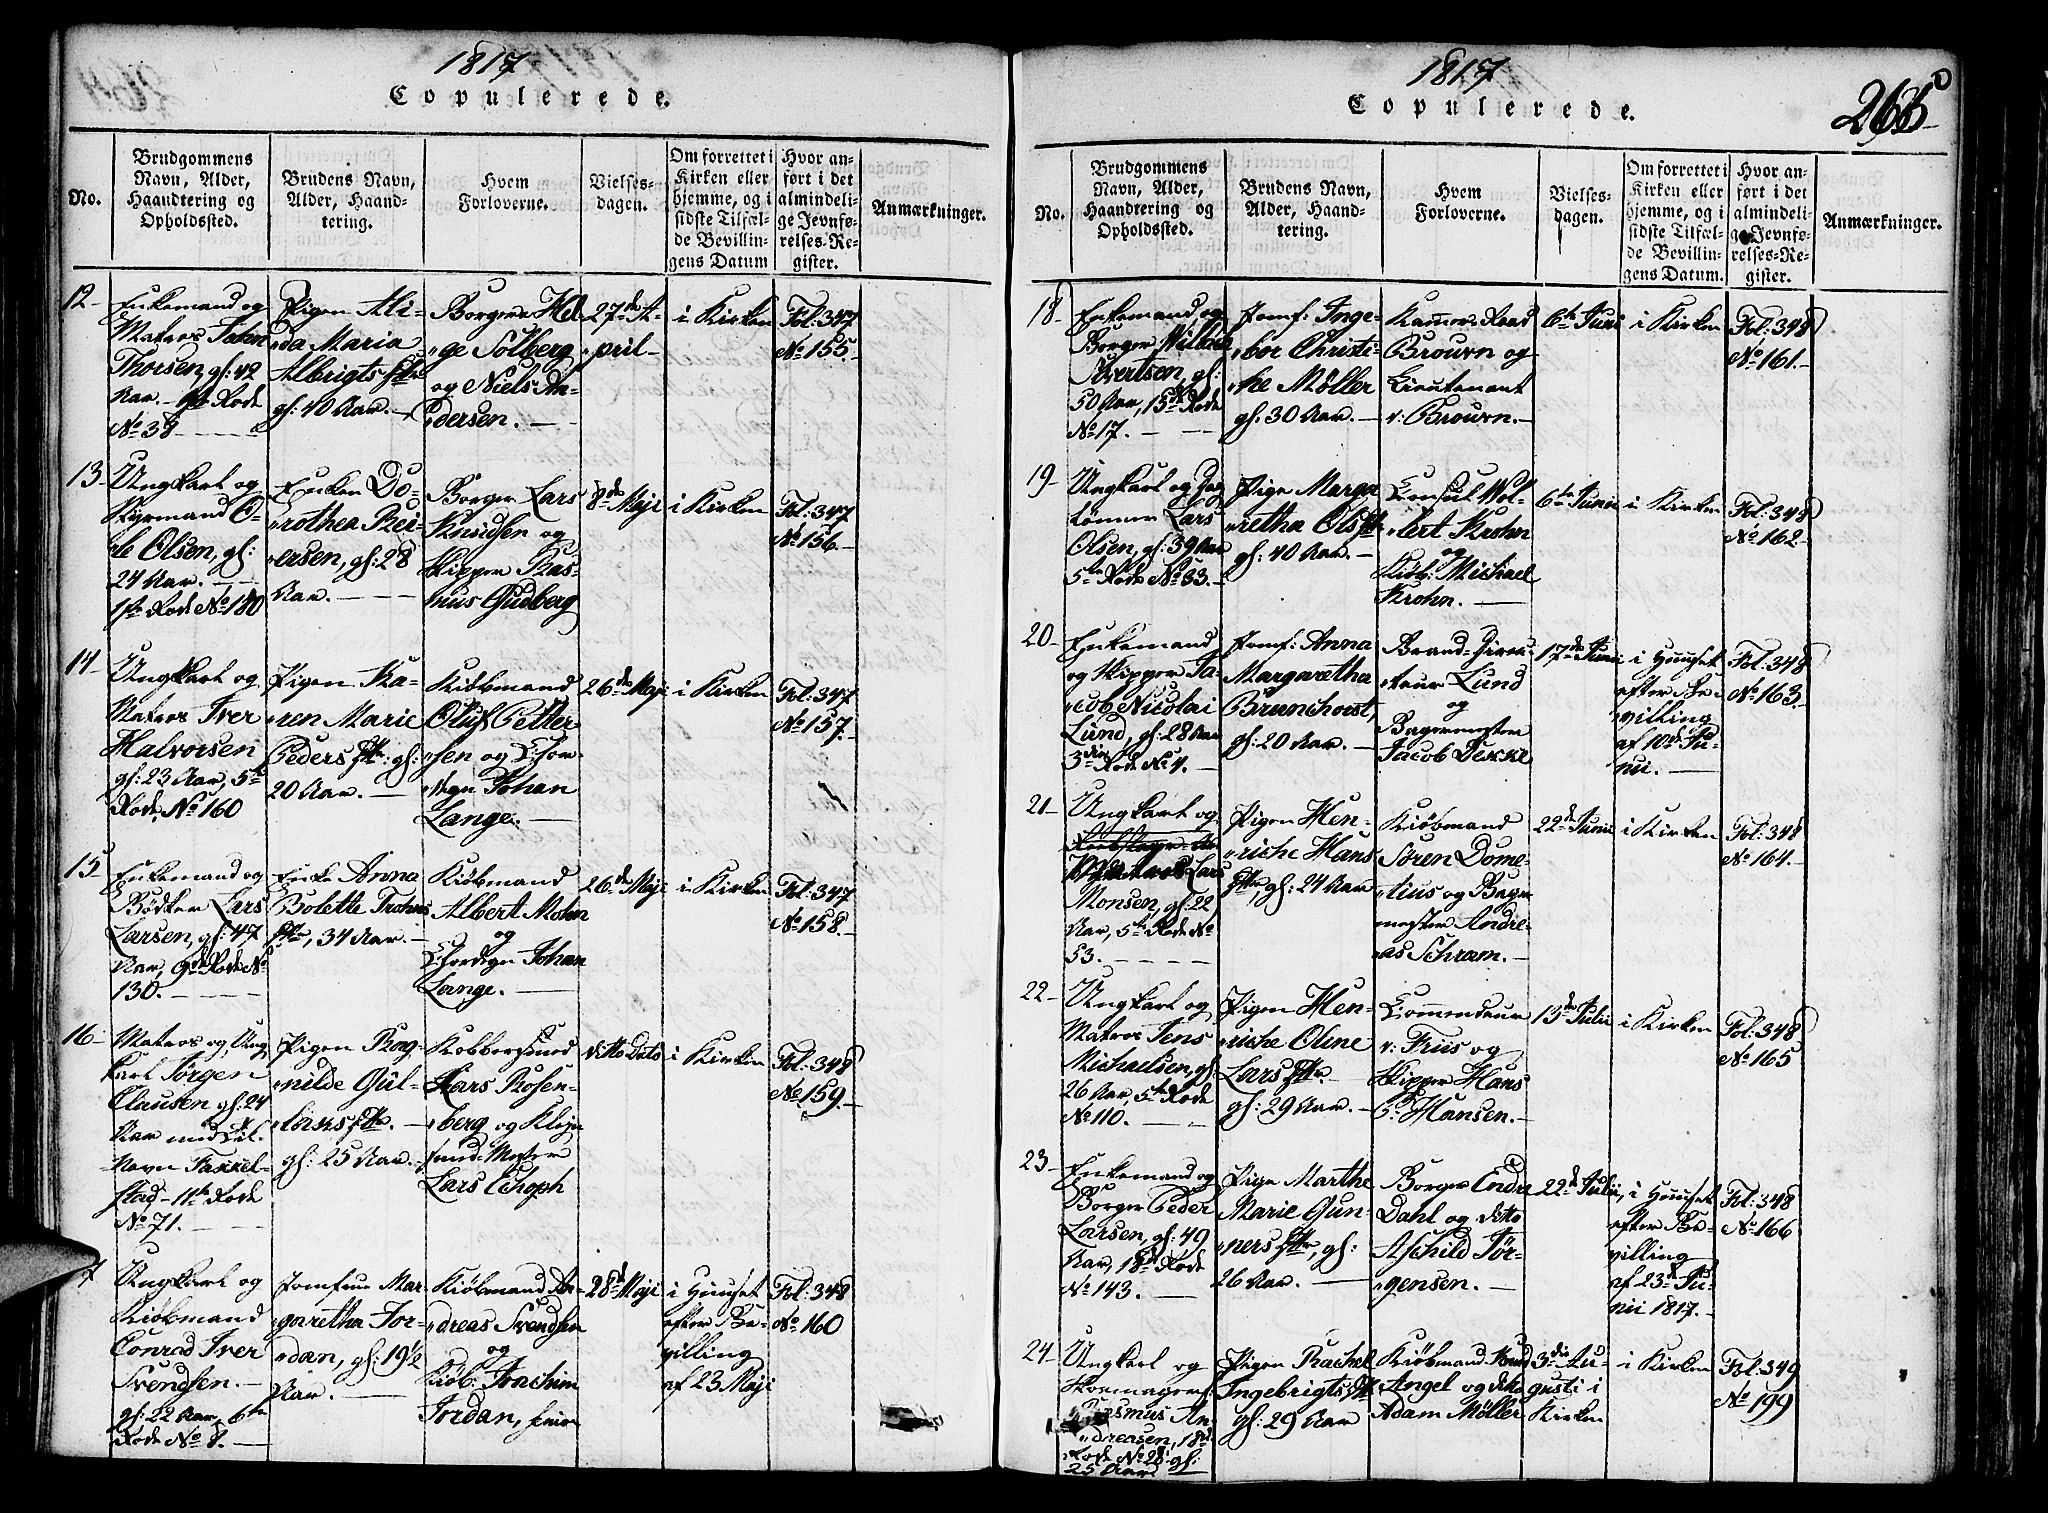 1817
Copulerede.
No.
Brudgommens
Navn, Alder,
Haandtering og
Opholdssted.
Brudens Navn,
Alder, Haand-
tering.
Hvem
Forloverne.
Vielses-
dagen.
Om forrettet i
Kirken eller
hjemme, og i
sidste Tilfæl-
de Bevillin-
gens Datum
Hvor an-
ført i det
almindeli-
ge Jevnfø-
relses-Re-
gister.
Anmærkninger.
12-
Enkemand og
Matros
Thorsen, gl: 42
Aar. - Rode
No 38
Pigen Ali-
"da Maria
Albrigts
gl: 40 Aar. -
Borgerne Hel-
"ge Solberg
og Niels An-
"dersen. -
27de A-
"pril -
i Kirken
Fol: 347
No 155.
13.
Ungkarl og
Styrmand O-
"le Olsen, gl:
24 Aar. -
1ste Rode No 180
Enken Do-
"rothea Rei-
"ersen, gl: 28
Aar. -
Borger Lars
Knudsen og
Skipper Ras-
"mus Gudberg
8de Maji
i Kirken
Fol: 347
No 156.
14.
Ungkarl og
Matros Iver
Halvorsen
gl: 23 Aar, 5te
Rode, No 160
Pigen Ka-
"ren Marie
Peders gl:
20 Aar. -
Kiöbmand
Oluf Petter-
"sen og Chor-
"degn Johan
Lange. -
26de Maji
i Kirken
Fol: 347
No 157.
15
Enkemand og
Bödker Lars
Larsen, gl: 47
Aar, 9de Rode No
130. -
Enke Anna
Bolette Trohns
34 Aar. -
Kiöbmand
Albert Mohn
og
Chordegn Johan
Lange. -
26de Maji
i Kirken
Fol: 347
No 158.
16-
Matros og Ung
karl Jörgen
Clausen gl: 24
Aar med Til-
Navn Fakkel-
stad - 11te Rode
No 71. -
Pigen Rag-
"nilde Gul-
gl: 25 Aar. -
Kobbersmed
Lars Rosen-
"berg og Klejn
smed-Mester
Lars Echoph
ditto Dato
i Kirken
Fol: 348
No 159.
7
Ungkarl og
Kiöbmand
Conrad Iver
Svendsen. -
gl: 22 Aar, 6te
Rode No 8. -
Jomfrue Mar-
"garetha Jor-
"dan, gl: 19½
Aar. -
Kiöbmand An-
"dreas Svendsen
og
Kiöb: Joachim
Jordan, senior
28de Maji
i Huuset
efter Be-
villing
af 23 Maji
Fol: 348
No 160
1817
Copulerede.
265
No.
Brudgommens
Navn, Alder,
Haandtering og
Opholdssted.
Brudens Navn,
Alder, Haand-
tering.
Hvem
Forloverne.
Vielses-
dagen.
Om forrettet i
Kirken eller
hjemme, og i
sidste Tilfæl-
de Bevillin-
gens Datum.
Hvor an-
ført i det
almindeli-
ge Jevnfø-
relses-Re-
gister.
Anmærkninger.
18
Enkemand og
Borger Willum
Sivertsen, gl:
50 Aar, 15de Rode
No 17. -
Jomf: Inge-
"bor Christi-
"ne Möller
gl: 30 Aar. -
Kammer-Raad
Brouvn og
Lieutenant
v: Brouvn. -
6te Juni
i Kirken
Fol: 348
No 161.
19
Ungkarl og
tömmer Lars
Olsen, gl: 39 Aar
5te Rode No 33. -
Pige Marga
"retha Ols
gl: 40 Aar. -
Consul Wol-
"lert Krohn
og
Kiöb: Michael
Krohn. -
6te Junii
i Kirken
Fol: 348
No 162.
20
Enkemand
og Skipper Ja-
"cob Nicolai
Lund, gl: 28 Aar
3die Rode No 4. -
Jomf: Anna
Margaretha
Brunchorst,
gl: 20 Aar. -
Brand-Direc-
"teur Lund
og
Bagermester
Jacob Dekke
17de Junii
i Huuset
efter Be-
"villing
af 10de Ju-
nii. -
Fol: 348
No 163.
21
Ungkarl og
Lars
Monsen, gl: 22
Aar, 5te Rode No
53. -
Pigen Hen-
"riche Hans
gl: 24 Aar
Kiöbmand
Sören Dome-
"tius og Bager
mester Andre-
"as Schram. -
22de Junii
i Kirken
Fol: 348
No 164.
22-
Ungkarl og
Matros Jens
Michaelsen, gl
26 Aar, 5te Rode
No 110. -
Pigen Hen-
"riche Oline
Lars
gl: 29 Aar. -
Commandeur
v: Friis og
Skipper Hans
C: Hansen. -
13de Julii
i Kirken
Fol: 348
No 165
23-
Enkemand og
Borger Peder
Larsen, gl: 49
Aar, 18de Rode
No 143. -
Pige Marthe
Marie Gun-
"ners gl:
26 Aar. -
Borger Endre
Dahl og ditto
Aschild Jör-
"gensen. -
22de Julii,
i Huuset
efter Be-
villing
af 23de Ju-
nii 1817. -
Fol: 348
No 166
24-
Ungkarl og
Skoemagersv:
Rasmus An-
"dreasen, 18de
Rode No 28: gl:
25 Aar
Pigen Rachel
Ingebrigts
gl: 29 Aar
Kiöbmand Knud
Angel og ditto
Adam Möller
3die Au-
gusti i
Kirken
i Kirken
Fol: 349
No 199